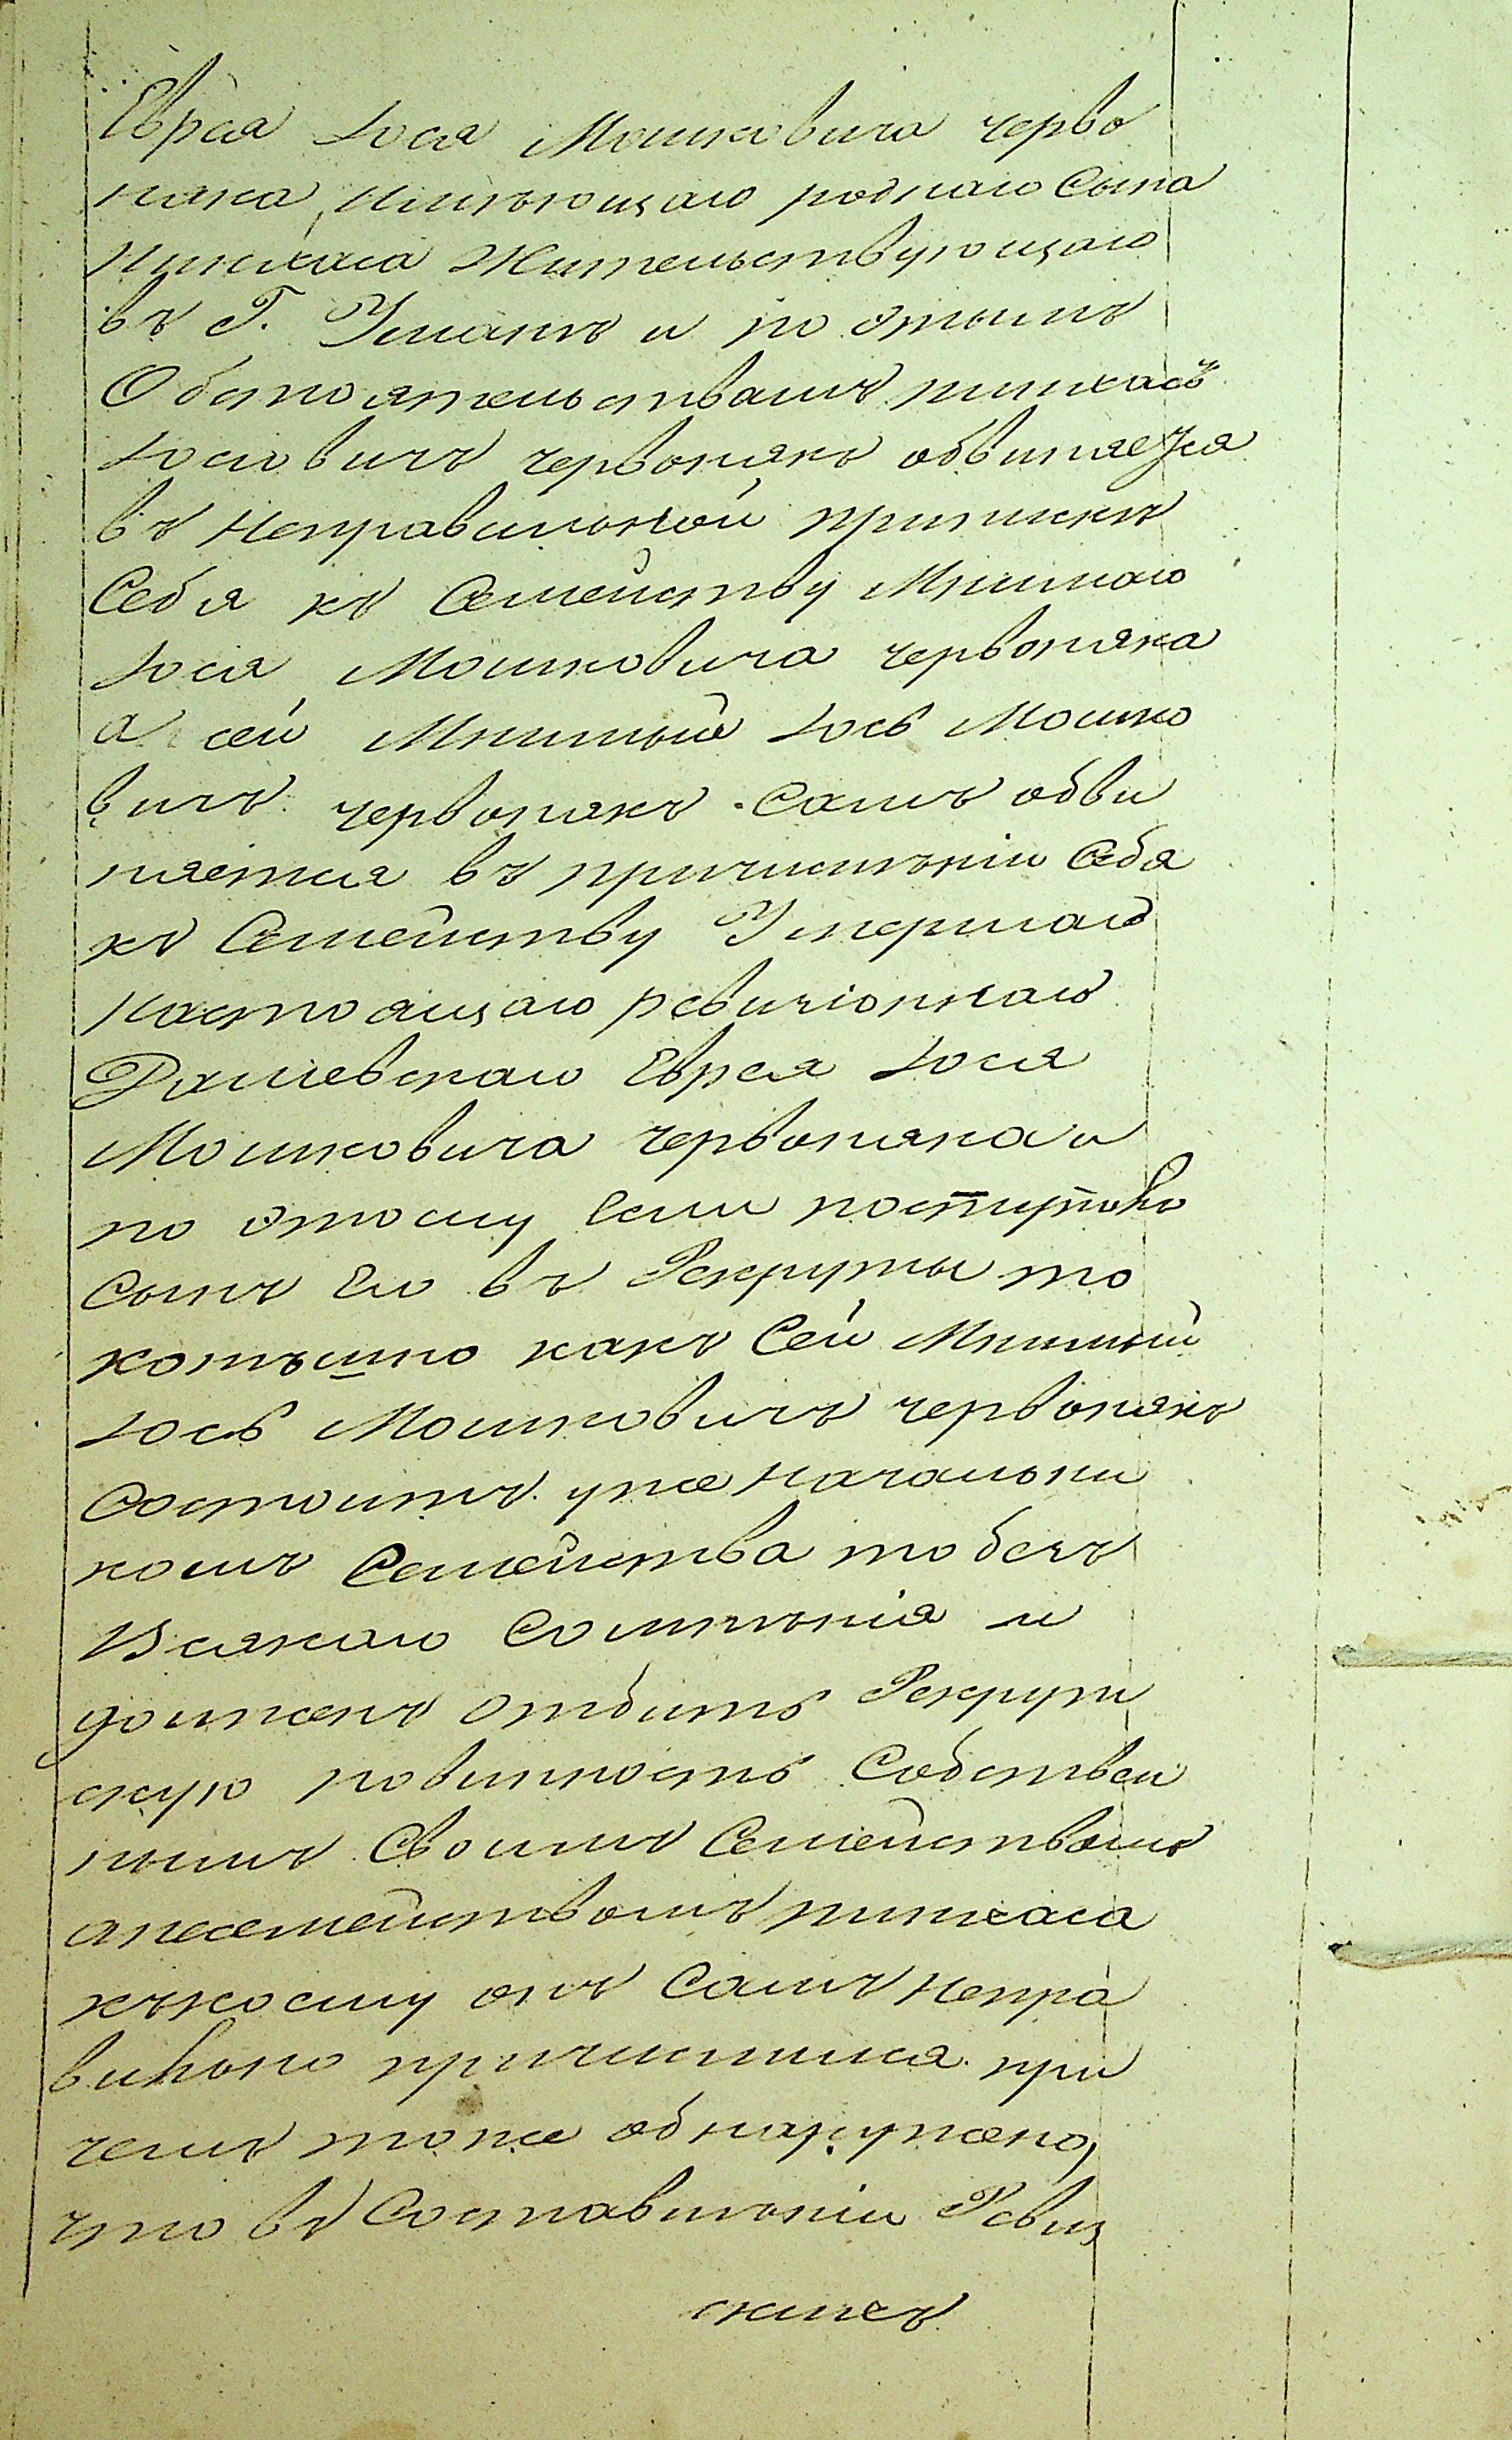 Еврея Іося Мошковича черво
няка, имѣющаго роднаго Сына
Пинхаса Жительствующаго
въ Г. Уманѣ и по этымъ
Обстоятельствамъ пинхасъ
Іосіовичъ червонякъ обвиняется
въ Неправильной припискѣ
Себя къ Семейству Мнимаго
Іося Мошковича червоняка
а сей Мнимый Іось Мошко
вичъ червонякъ Самъ обви
няется въ причисленіи Себя
къ Семейству Умершаго
Настоящаго ревизіоннаго
Рашевскаго Еврея Іося
Мошковича червоняка и
по этому Если поступитъ
Сынъ Его въ Рекруты то
конѣшно какъ Сей Мнимый
Іось Мошковичъ червонякъ
Состоитъ уже Начальни
комъ Семейства то безъ
Всякаго Сомнѣнія и
долженъ отбить Рекрут
скую повинность Собствен
нымъ Своимъ Семействомъ
анесемействомъ пинхаса
къкоему онъ Самъ Непра
вильно причислился при
чемъ тоже обнаружено,
что въ Составленіи Ревиз
скихъ